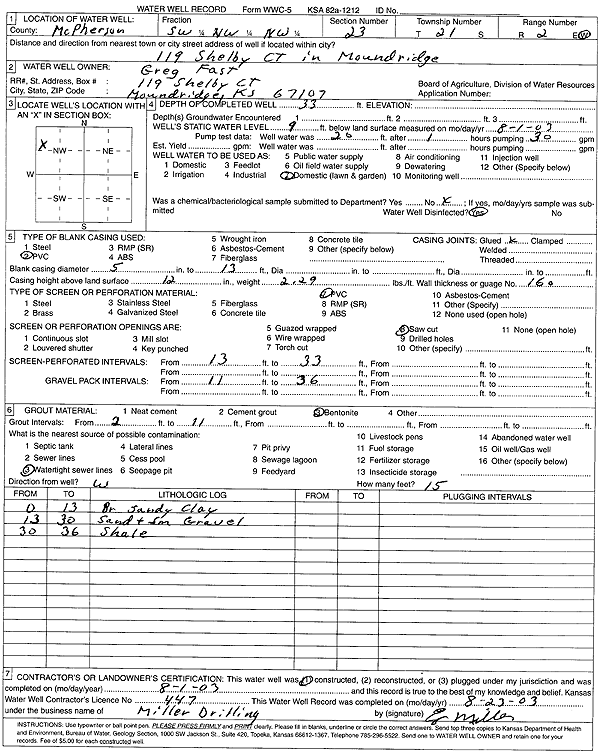 WATER WELL RECORD Form WWC-5 KSA 82a-1212 ID No.
1 LOCATION OF WATER WELL: Fraction Section Number Township Number Range Number
County: McPherson SW ¼ NW ¼ NW ¼ 23 T 21 S R 2 E W
Distance and direction from nearest town or city street address of well if located within city?
119 Shelby CT in Moundridge
2 WATER WELL OWNER: Greg Fast
RR#, St. Address, Box # : 119 Shelby CT Board of Agriculture, Division of Water Resources
City, State, ZIP Code : Moundridge, KS 67107 Application Number:
3 LOCATE WELL'S LOCATION WITH AN "X" IN SECTION BOX:
N
X
NW NE
W E
SW SE
S
4 DEPTH OF COMPLETED WELL 33 ft. ELEVATION:
Depth(s) Groundwater Encountered 1 ft. 2 ft. 3 ft.
WELL'S STATIC WATER LEVEL 9 ft. below land surface measured on mo/day/yr 8-1-03
Pump test data: Well water was 20 ft. after 1 hours pumping 30 gpm
Est. Yield gpm: Well water was ft. after hours pumping gpm
WELL WATER TO BE USED AS: 5 Public water supply 8 Air conditioning 11 Injection well
1 Domestic 3 Feedlot 6 Oil field water supply 9 Dewatering 12 Other (Specify below)
2 Irrigation 4 Industrial 7 Domestic (lawn & garden) 10 Monitoring well
Was a chemical/bacteriological sample submitted to Department? Yes No X ; If yes, mo/day/yrs sample was submitted Water Well Disinfected? Yes No
5 TYPE OF BLANK CASING USED: 5 Wrought iron 8 Concrete tile CASING JOINTS: Glued X Clamped
1 Steel 3 RMP (SR) 6 Asbestos-Cement 9 Other (specify below) Welded
2 PVC 4 ABS 7 Fiberglass Threaded
Blank casing diameter 5 in. to 13 ft., Dia in. to ft., Dia in. to ft.
Casing height above land surface 12 in., weight 2.29 lbs./ft. Wall thickness or guage No. 160
TYPE OF SCREEN OR PERFORATION MATERIAL: 7 PVC 10 Asbestos-Cement
1 Steel 3 Stainless Steel 5 Fiberglass 8 RMP (SR) 11 Other (Specify)
2 Brass 4 Galvanized Steel 6 Concrete tile 9 ABS 12 None used (open hole)
SCREEN OR PERFORATION OPENINGS ARE: 5 Guazed wrapped 8 Saw cut 11 None (open hole)
1 Continuous slot 3 Mill slot 6 Wire wrapped 9 Drilled holes
2 Louvered shutter 4 Key punched 7 Torch cut 10 Other (specify) ft.
SCREEN-PERFORATED INTERVALS: From 13 ft. to 33 ft., From ft. to ft.
From ft. to ft., From ft. to ft.
GRAVEL PACK INTERVALS: From 11 ft. to 36 ft., From ft. to ft.
From ft. to ft., From ft. to ft.
6 GROUT MATERIAL: 1 Neat cement 2 Cement grout 3 Bentonite 4 Other
Grout Intervals: From 2 ft. to 11 ft., From ft. to ft., From ft. to ft.
What is the nearest source of possible contamination: 10 Livestock pens 14 Abandoned water well
1 Septic tank 4 Lateral lines 7 Pit privy 11 Fuel storage 15 Oil well/Gas well
2 Sewer lines 5 Cess pool 8 Sewage lagoon 12 Fertilizer storage 16 Other (specify below)
3 Watertight sewer lines 6 Seepage pit 9 Feedyard 13 Insecticide storage
Direction from well? W How many feet? 15
FROM TO LITHOLOGIC LOG FROM TO PLUGGING INTERVALS
0 13 Br Sandy Clay
13 30 Sand + Sm Gravel
30 36 Shale
7 CONTRACTOR'S OR LANDOWNER'S CERTIFICATION: This water well was (1) constructed, (2) reconstructed, or (3) plugged under my jurisdiction and was
completed on (mo/day/year) 8-1-03 and this record is true to the best of my knowledge and belief. Kansas
Water Well Contractor's Licence No 447 This Water Well Record was completed on (mo/day/yr) 8-23-03
under the business name of Miller Drilling by (signature) E Miller
INSTRUCTIONS: Use typewriter or ball point pen. PLEASE PRESS FIRMLY and PRINT clearly. Please fill in blanks, underline or circle the correct answers. Send top three copies to Kansas Department of Health
and Environment, Bureau of Water, Geology Section, 1000 SW Jackson St., Suite 420, Topeka, Kansas 66612-1367. Telephone 785-296-5522. Send one to WATER WELL OWNER and retain one for your
records. Fee of $5.00 for each constructed well.